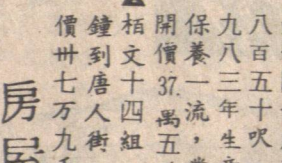 八百五十呎
九八三年生
保養一流，
開價37.萬五
栢文十四組
鐘到唐人街
價卅七万九
房屋